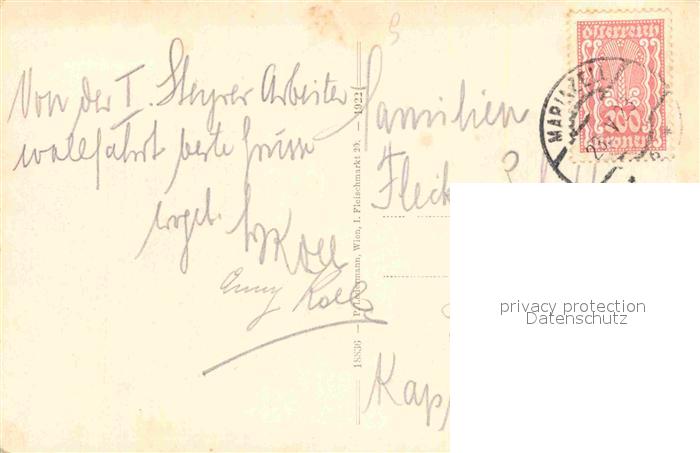 Von der I. Steyrer Arbeiter
wallfahrt beste Grüsse
ergeb.
Koll
Anny Kolb
18836 – P. Ledermann, Wien, I. Fleischmarkt 29. – 1922
Familien
Kap
Österreich
200
Kronen
MARIAZELL
privacy protection
Datenschutz